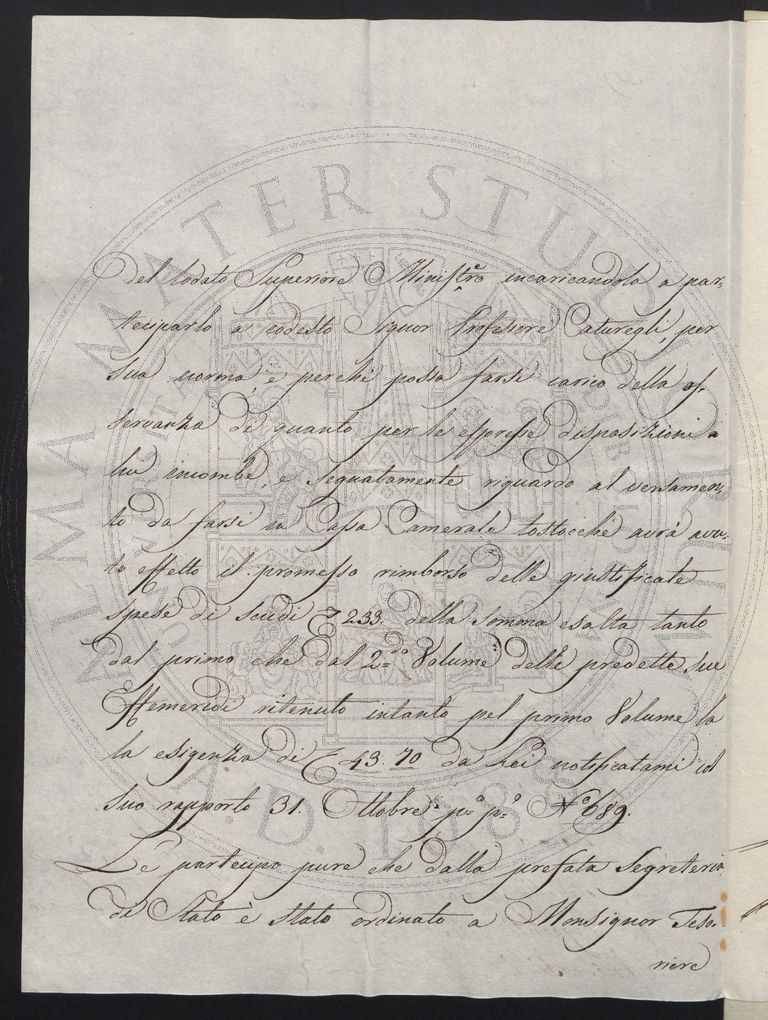 del lodato Superiore Ministro incaricandola a par-
teciparlo a codesto Signor Professore Caturegli, per
sua norma, e perchè possa farsi carico della os-
servanza di quanto per le espresse disposizioni a
lui incombe, e segnatamente riguardo al versamen-
to da farsi in Cassa Camerale tostocchè avrà avu-
to effetto il promesso rimborso delle giustificate
spese di scudi 233. della somma esatta tanto
dal primo che dal 2do Volume delle predette sue
Effemeridi ritenuto intanto pel primo Volume la
la esigenza di 43. 70 da Lei notificatami col
suo rapporto 31. Ottobre p.o p.o No 689.
Le partecipo pure che dalla prefata Segreteria
di Stato è stato ordinato a Monsignor Teso-
riere
ALMA MATER STUDIORUM
A.D. 1088